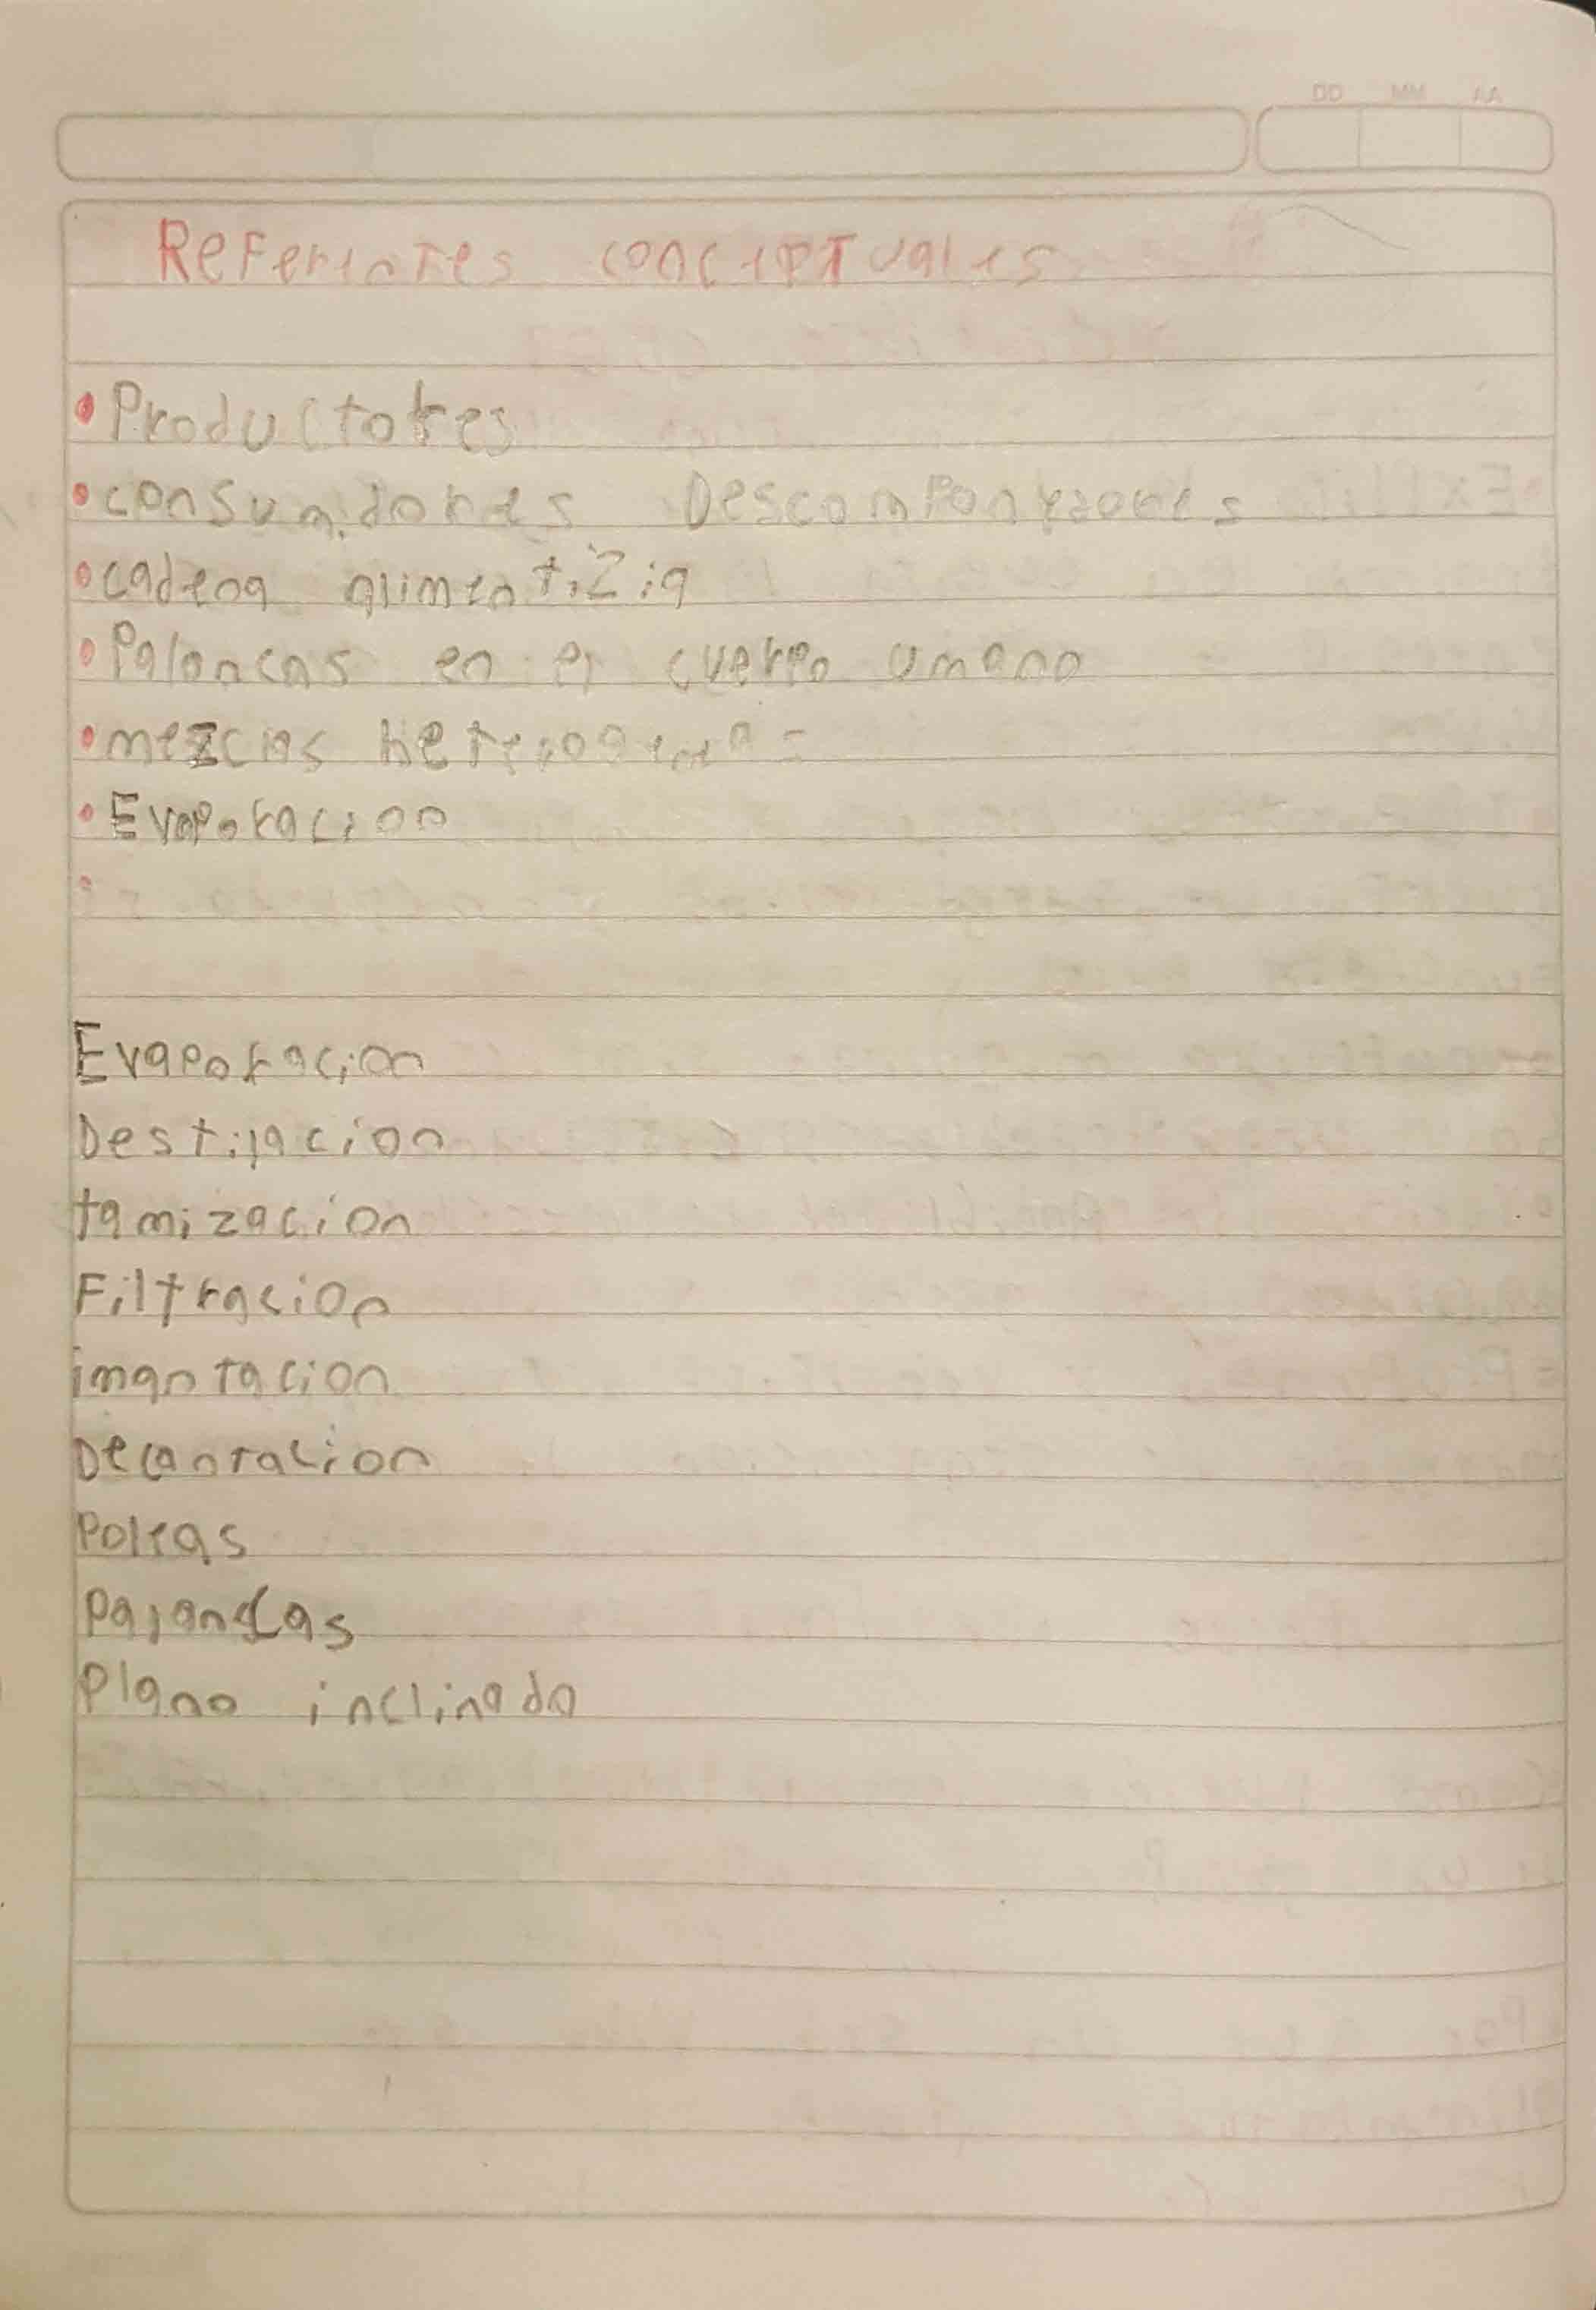 DD MM AA
Referentes conceptuales
•Productores
•consumidores Descomponedores
•cadena alimentiZia
•Palancas en el cuerpo umano
•mezclas heterogenea
•Evaporacion
Evaporacion
Destilacion
tamizacion
Filtracion
imantacion
Decantacion
Poleas
Palancas
Plano inclinado